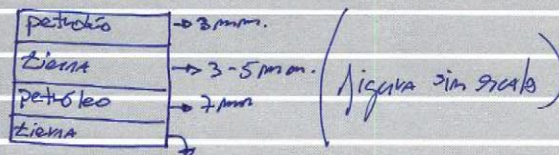 petróleo → 3 mm.
tierra → 3-5 mm.
petróleo → 7 mm
tierra
(figura sin escala)